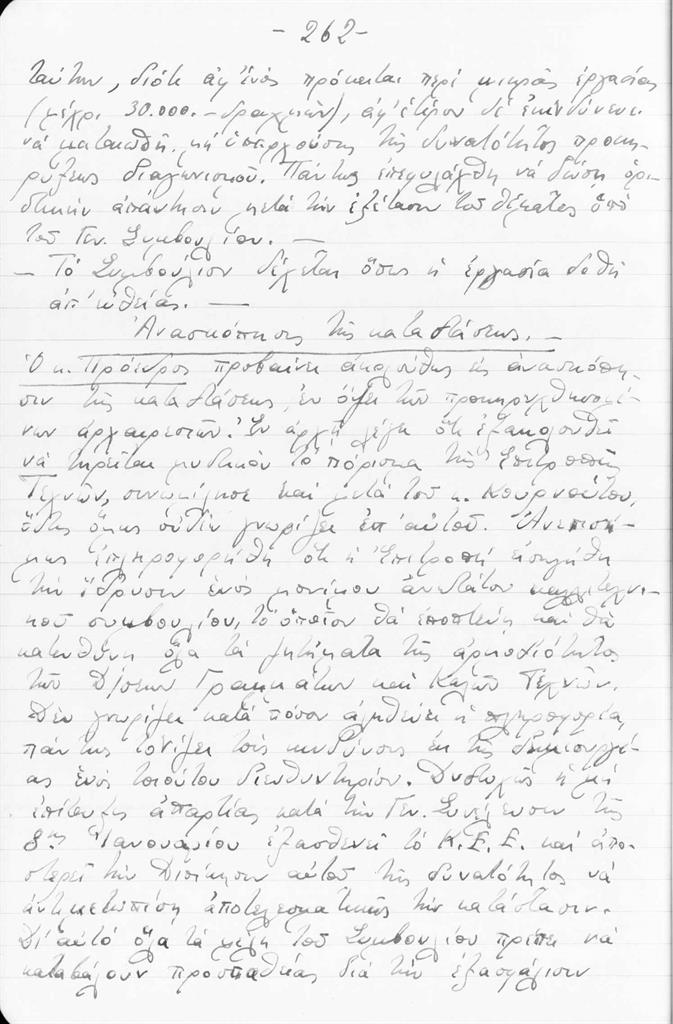 - 262 -
ταύτην, διότι ἀφ' ἑνός πρόκειται περί μικρᾶς ἐργασίας
(μέχρι 30.000.- δραχμῶν), ἀφ' ἑτέρου δέ ἐκινδύνευε
νά ματαιωθῆ, μή ὑπαρχούσης τῆς δυνατότητος προκη-
ρύξεως διαγωνισμοῦ. Πάντως ἐπεφυλάχθη νά δώση ὁρι-
στικήν ἀπάντησιν μετά τήν ἐξέτασιν τοῦ θέματος ὑπό
τοῦ Γεν. Συμβουλίου. —
- Τό Συμβούλιον δέχεται ὅπως ἡ ἐργασία δοθῆ
ἀπ' εὐθείας. —
Ἀνασκόπησις τῆς καταστάσεως. -
Ὁ κ. Πρόεδρος προβαίνει ἀκολούθως εἰς ἀνασκόπη-
σιν τῆς καταστάσεως, ἐν ὄψει τῶν προκηρυχθησομέ-
νων ἀρχαιρεσιῶν. Ἐν ἀρχῆ λέγει ὅτι ἐξακολουθεῖ
νά τηρεῖται μυστικόν τό πόρισμα τῆς Ἐπιτροπῆς
Τεχνῶν, συνωμίλησε καί μετά τοῦ κ. Κουρνούτου,
ὅστις ὅμως οὐδέν γνωρίζει ἐπ' αὐτοῦ. Ἀνεπισή-
μως ἐπληροφορήθη ὅτι ἡ Ἐπιτροπή εἰσηγήθη
τήν ἵδρυσιν ἑνός μονίμου ἀνωτάτου καλλιτεχνι-
κοῦ συμβουλίου, τό ὁποῖον θά ἐποπτεύη καί θά
κατευθύνη ὅλα τά ζητήματα τῆς ἁρμοδιότητος
τῶν Δ/σεων Γραμμάτων καί Καλῶν Τεχνῶν.
Δέν γνωρίζει κατά πόσον ἀληθεύει ἡ πληροφορία,
πάντως τονίζει τούς κινδύνους ἐκ τῆς δημιουργί-
ας ἑνός τοιούτου διευθυντηρίου. Δυστυχῶς ἡ μή
ἐπίτευξις ἀπαρτίας κατά τήν Γεν. Συνέλευσιν τῆς
8ης Ἰανουαρίου ἐξασθενεῖ τό Κ.Ε.Ε. καί ἀπο-
στερεῖ τήν Διοίκησιν αὐτοῦ τῆς δυνατότητος νά
ἀντιμετωπίση ἀποτελεσματικῶς τήν κατάστασιν.
Δι' αὐτό ὅλα τά μέλη τοῦ Συμβουλίου πρέπει νά
καταβάλουν προσπαθείας διά τήν ἐξασφάλισιν